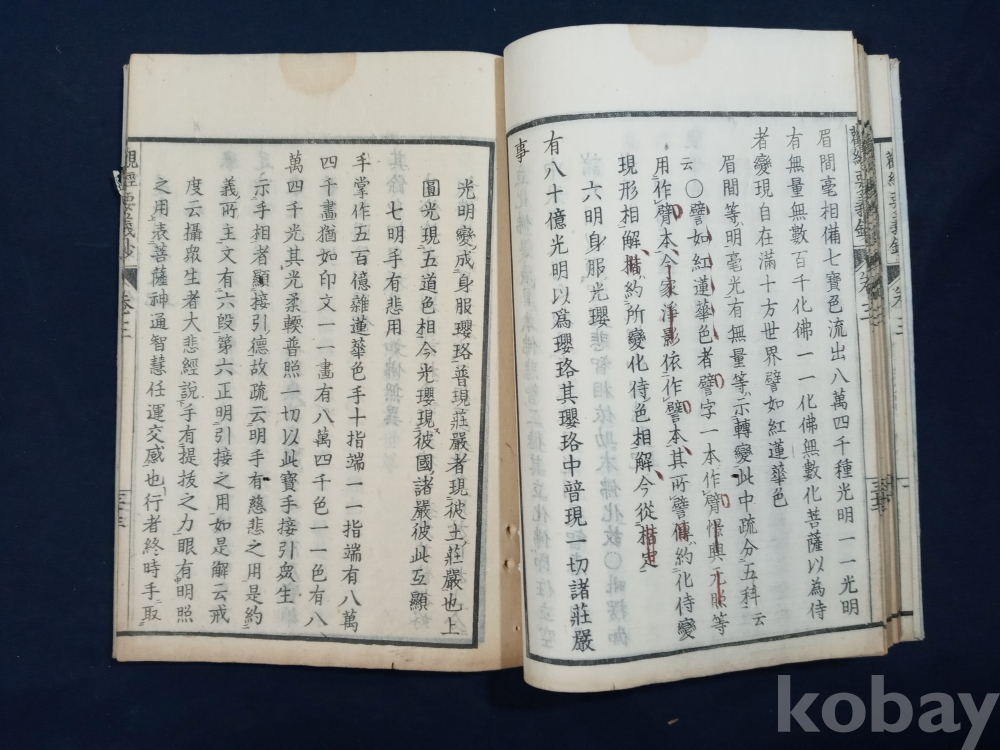 眉間毫相備七寶色流出八萬四千種光明一一光明
有無量無數百千化佛一一化佛無數化菩薩以為侍
者變現自在滿十方世界譬如紅蓮華色
眉間等明毫光有無量等示轉變此中疏分五科云
云〇譬如紅蓮華色者譬字一本作臂憬興元照等
用作臂本今家淨影依作譬本其所譬傳約化侍變
現形相解揩約所變化侍色相解今從揩定
六明身服光瓔
有八十億光明以爲瓔珞其瓔珞中普現一切諸莊嚴
事
光明變成身服瓔珞普現莊嚴者現彼土莊嚴也上
圓光現五道色相今光瓔現彼國諸嚴彼此互顯
七明手有悲用
手掌作五百億雜蓮華色手十指端一一指端有八萬
四千畫猶如印文一一畫有八萬四千色一一色有八
萬四千光其光柔輭普照一切以此寶手接引衆生
示手相者顯接引德故疏云明手有慈悲之用是約
義所主文有六段第六正明引接之用如是解云戒
度云攝衆生者大悲經說手有提拔之力眼有明照
之用表菩薩神通智慧任運交感也行者終時手取
觀經要義鈔
卷三
kobay